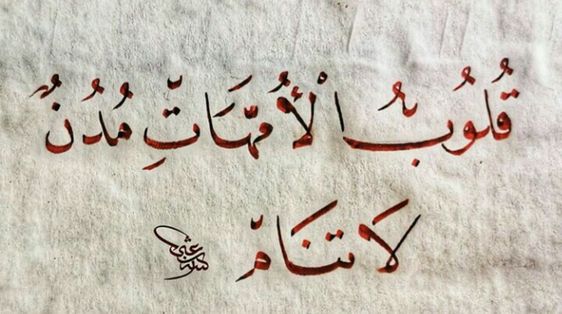 قُلُوبُ الْأُمَّهَاتِ مُدُنٌ
لَا تَنَام